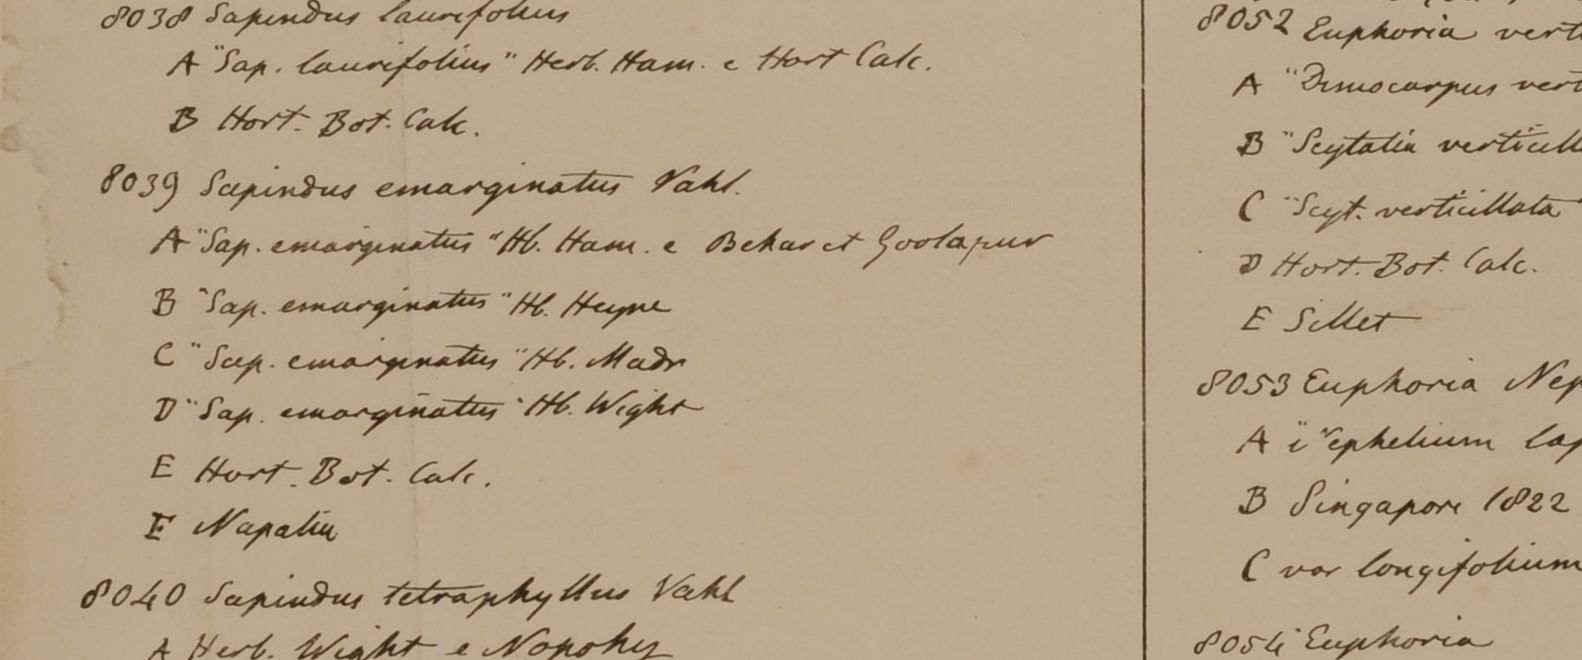 8038 Sapindus laurifolius
A "Sap. laurifolius" Herb. Ham. e Hort Calc.
B Hort. Bot. Calc.
8039 Sapindus emarginatus Vahl.
A "Sap. emarginatus" Hb. Ham. e Behar et Goolapur
B "Sap. emarginatus" Hb. Heyne
C "Sap. emarginatus" Hb. Madr
D "Sap. emarginatus" Hb. Wight
E Hort. Bot. Calc.
F Napalia
8040 Sapindus tetraphyllus Vahl
A Herb. Wight e
8052 Euphoria vert
A "Dimocarpus vert
B "Scytalia verticill
C "Scyt. verticillata
D Hort. Bot. Calc.
E Sillet
8053 Euphoria Nep
A "Nephelium lap
B Singapore 1822
C var longifolium
8054 Euphoria